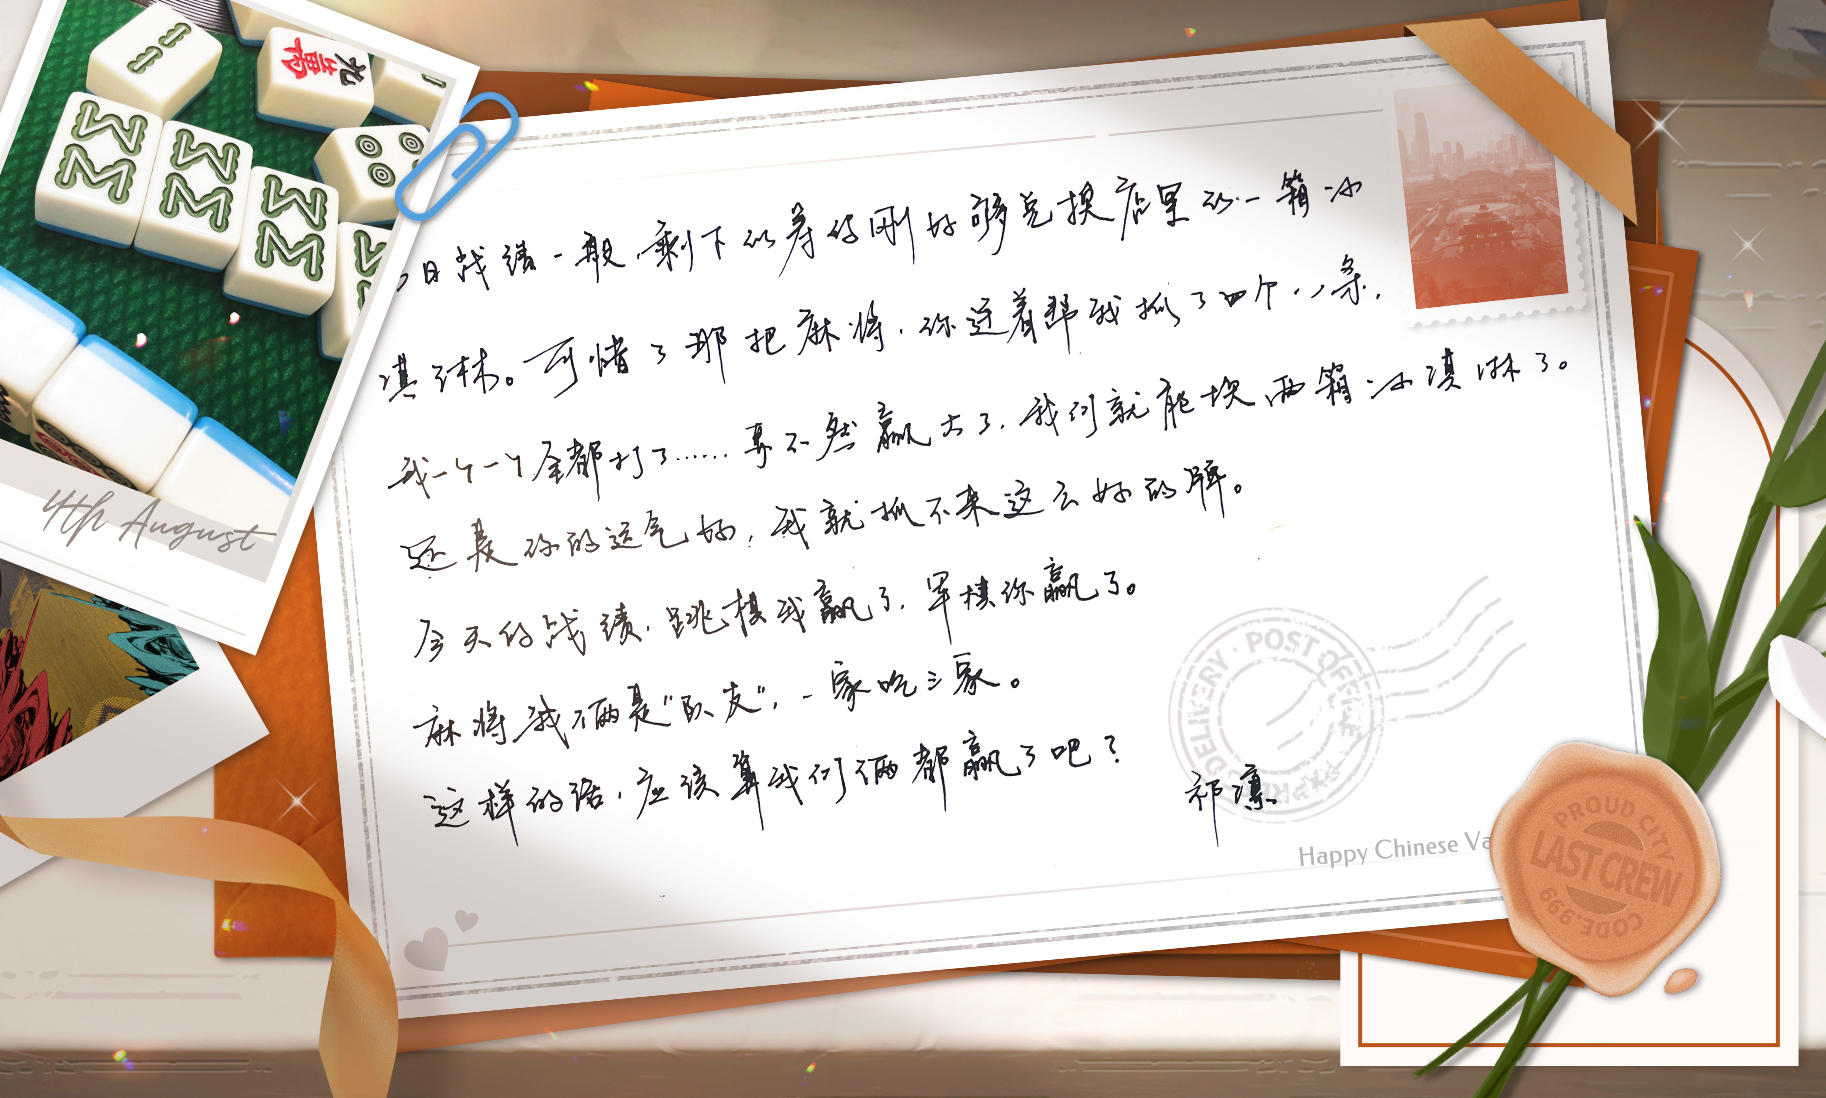 日战绩一般，剩下的筹码刚好够兑换店里的一箱冰
淇淋。可惜了那把麻将，你连着帮我抓了四个八条，
我一个一个全都打了……要不然赢大了，我们就能换两箱冰淇淋了。
还是你的运气好，我就抓不来这么好的牌。
今天的战绩，跳棋我赢了，军棋你赢了。
麻将我俩是“队友”，一家吃三家。
这样的话，应该算我们俩都赢了吧？
祁凛
4th August
九萬
DELIVERY · POST OFFICE
Happy Chinese Va
PROUD CITY
LAST CREW
CODE.999